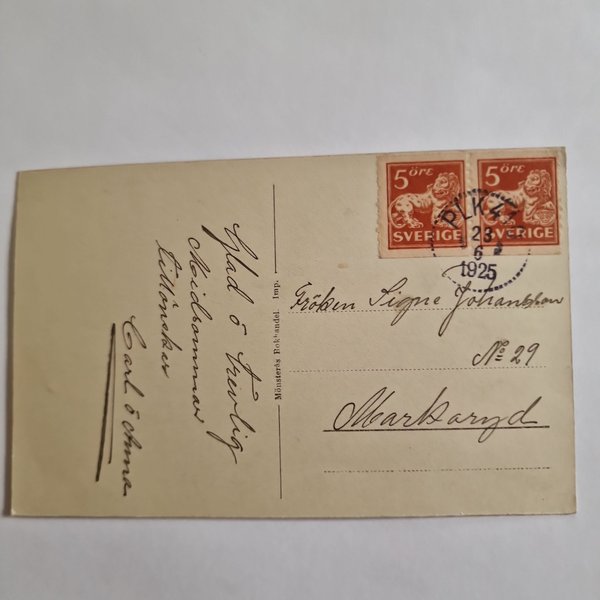 Glad ö trevlig
Midsommar
tillönskas
Carl ö Anna
Mönsterås Bokhandel. Imp.
5 ÖRE
SVERIGE
5 ÖRE
SVERIGE
PLK 47
23
6
1925
Fröken Signe Johansson
No 29
Markaryd